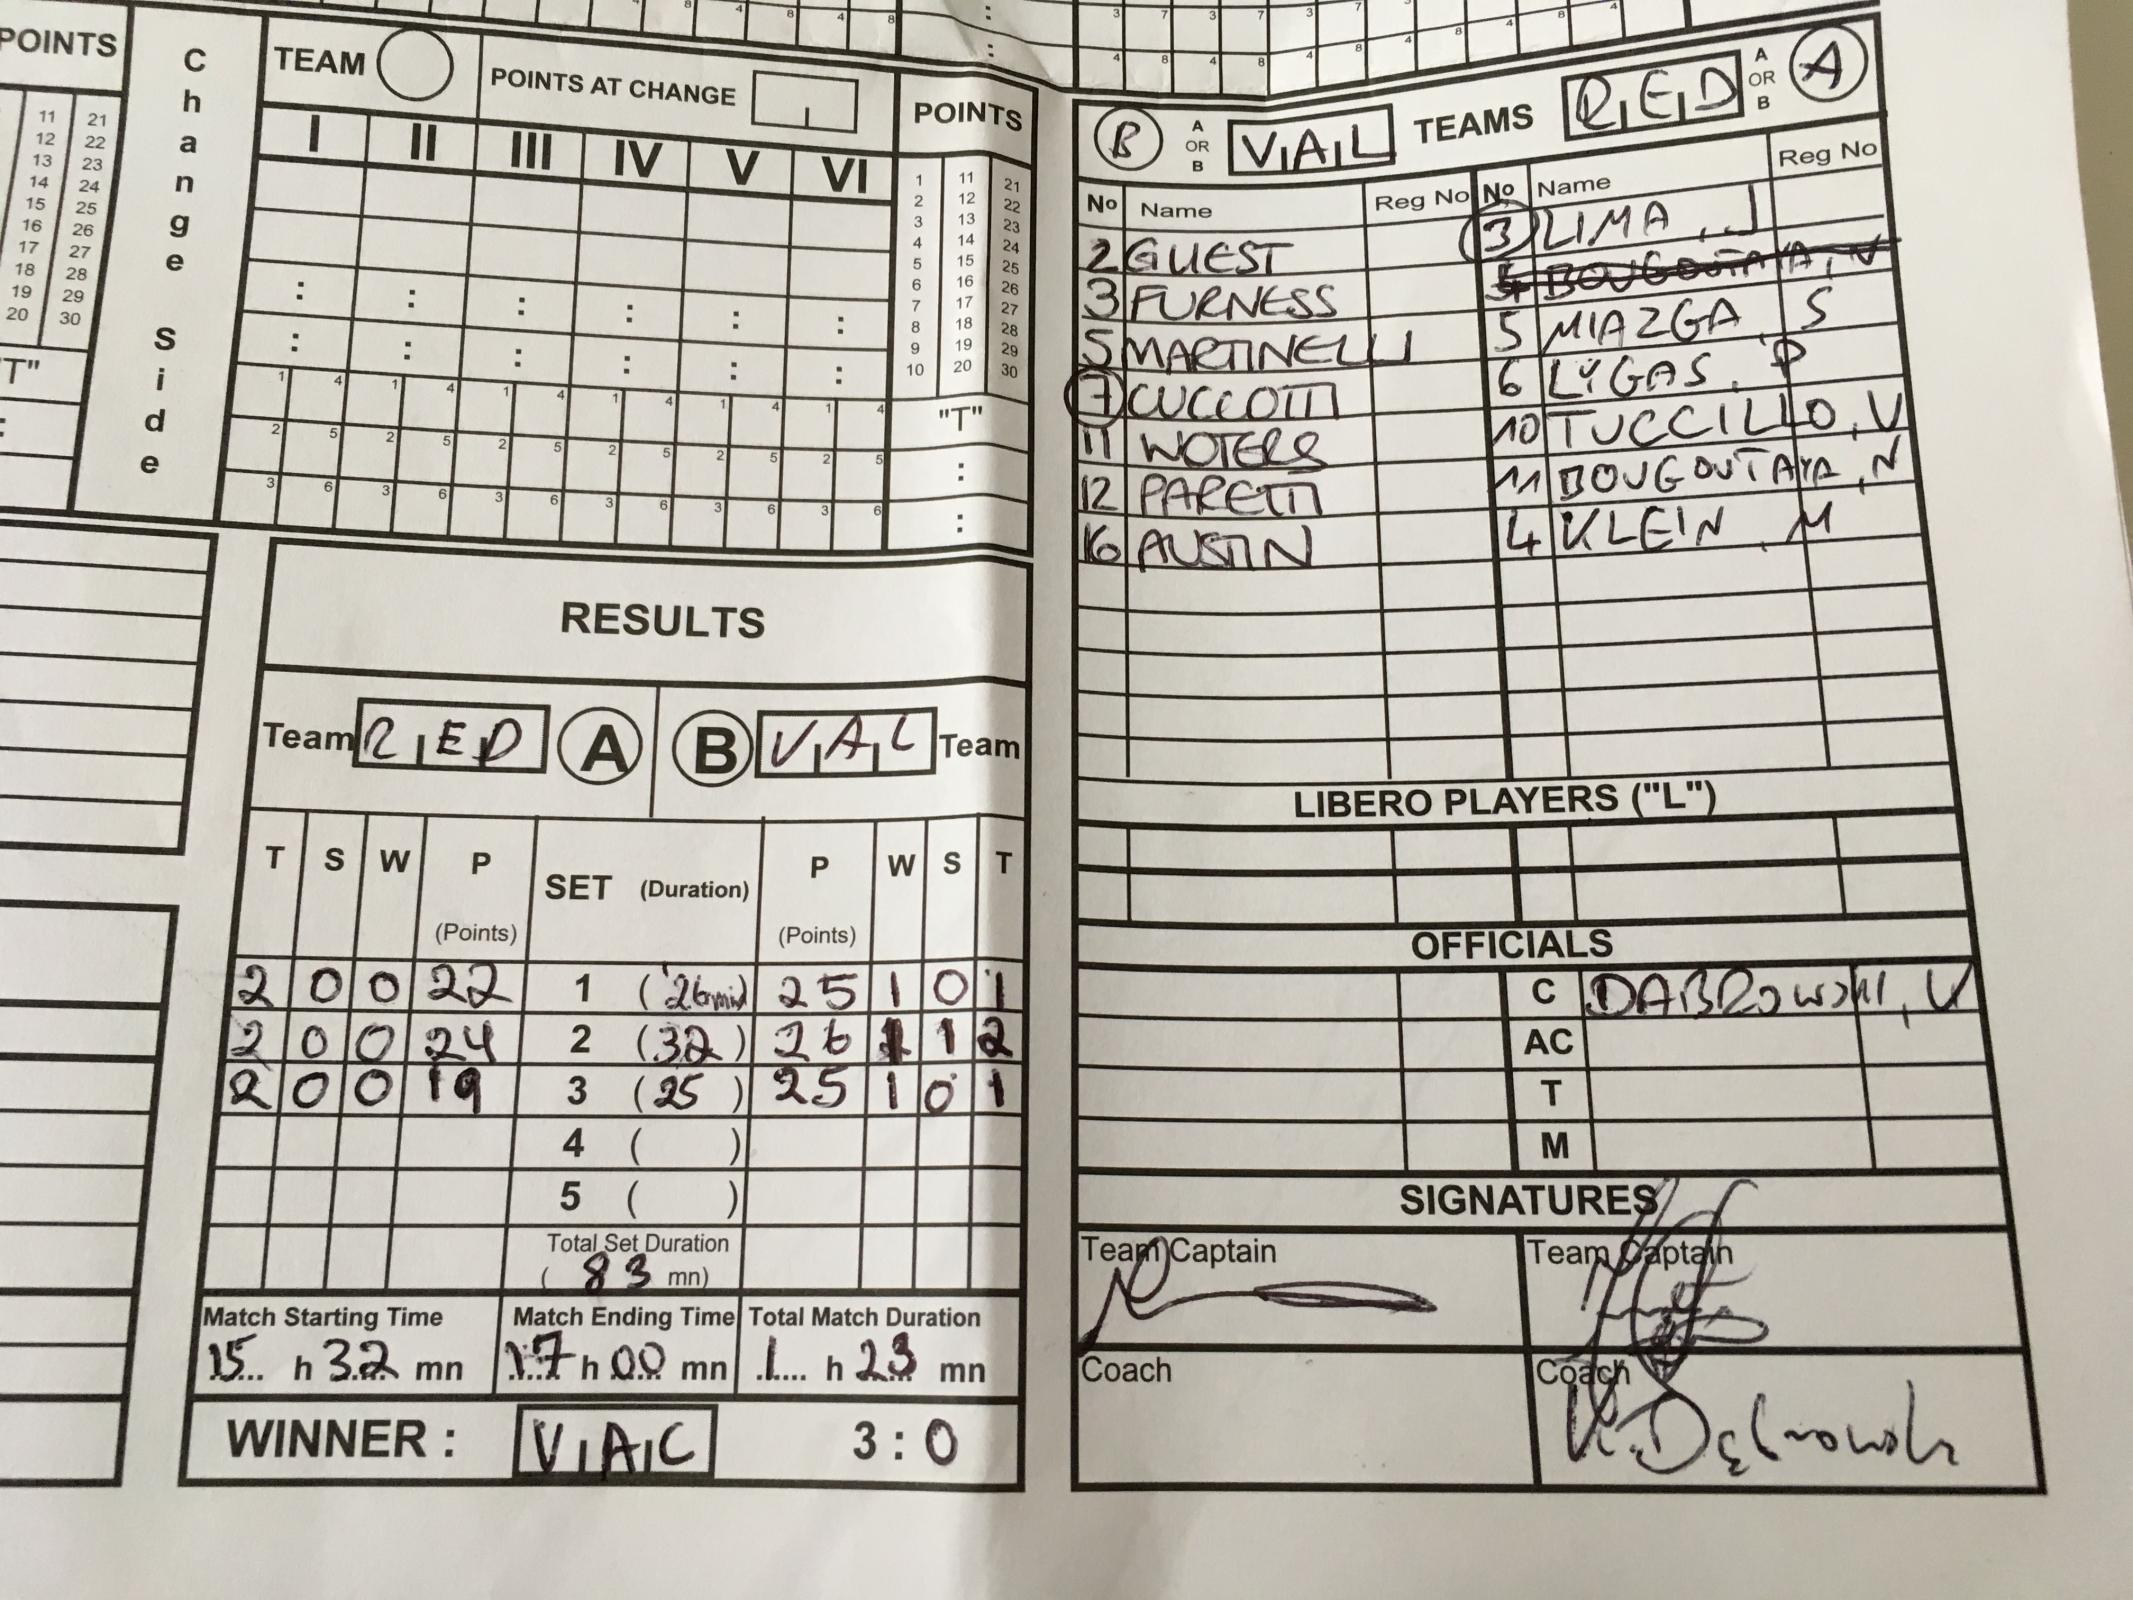 POINTS
11 21
12 22
13 23
14 24
15 25
16 26
17 27
18 28
19 29
20 30
"T"
:
Change Side
TEAM
POINTS AT CHANGE
POINTS
I II III IV V VI
1 11 21
2 12 22
3 13 23
4 14 24
5 15 25
6 16 26
7 17 27
8 18 28
9 19 29
10 20 30
: : : : : :
: : : : : :
1 4 1 4 1 4 1 4 1 4 1 4
"T"
2 5 2 5 2 5 2 5 2 5 2 5
:
3 6 3 6 3 6 3 6 3 6 3 6
:
RESULTS
Team RED A B VAL Team
T S W P (Points) SET (Duration) P (Points) W S T
2 0 0 22 1 (26min) 25 1 0 1
2 0 0 24 2 (32) 26 1 1 2
2 0 0 19 3 (25) 25 1 0 1
4 ( )
5 ( )
Total Set Duration
( 83 mn)
Match Starting Time Match Ending Time Total Match Duration
15 h 32 mn 17 h 00 mn 1 h 23 mn
WINNER : VAL 3 : 0
B A OR B VAL TEAMS RED A OR B A
No Name Reg No No Name Reg No
2 GUEST 3 LIMA, J
3 FURNESS BOUGOUTAYA, N
5 MARTINELLI 5 MIAZGA, S
7 CUCCOTTI 6 LYGAS, P
11 WOTERS 10 TUCCILLO, V
12 PARETTI 11 BOUGOUTAYA, N
16 AUSTIN 4 KLEIN, M
LIBERO PLAYERS ("L")
OFFICIALS
C DABROWSKI, K
AC
T
M
SIGNATURES
Team Captain Team Captain
Coach Coach
K. Dąbrowski